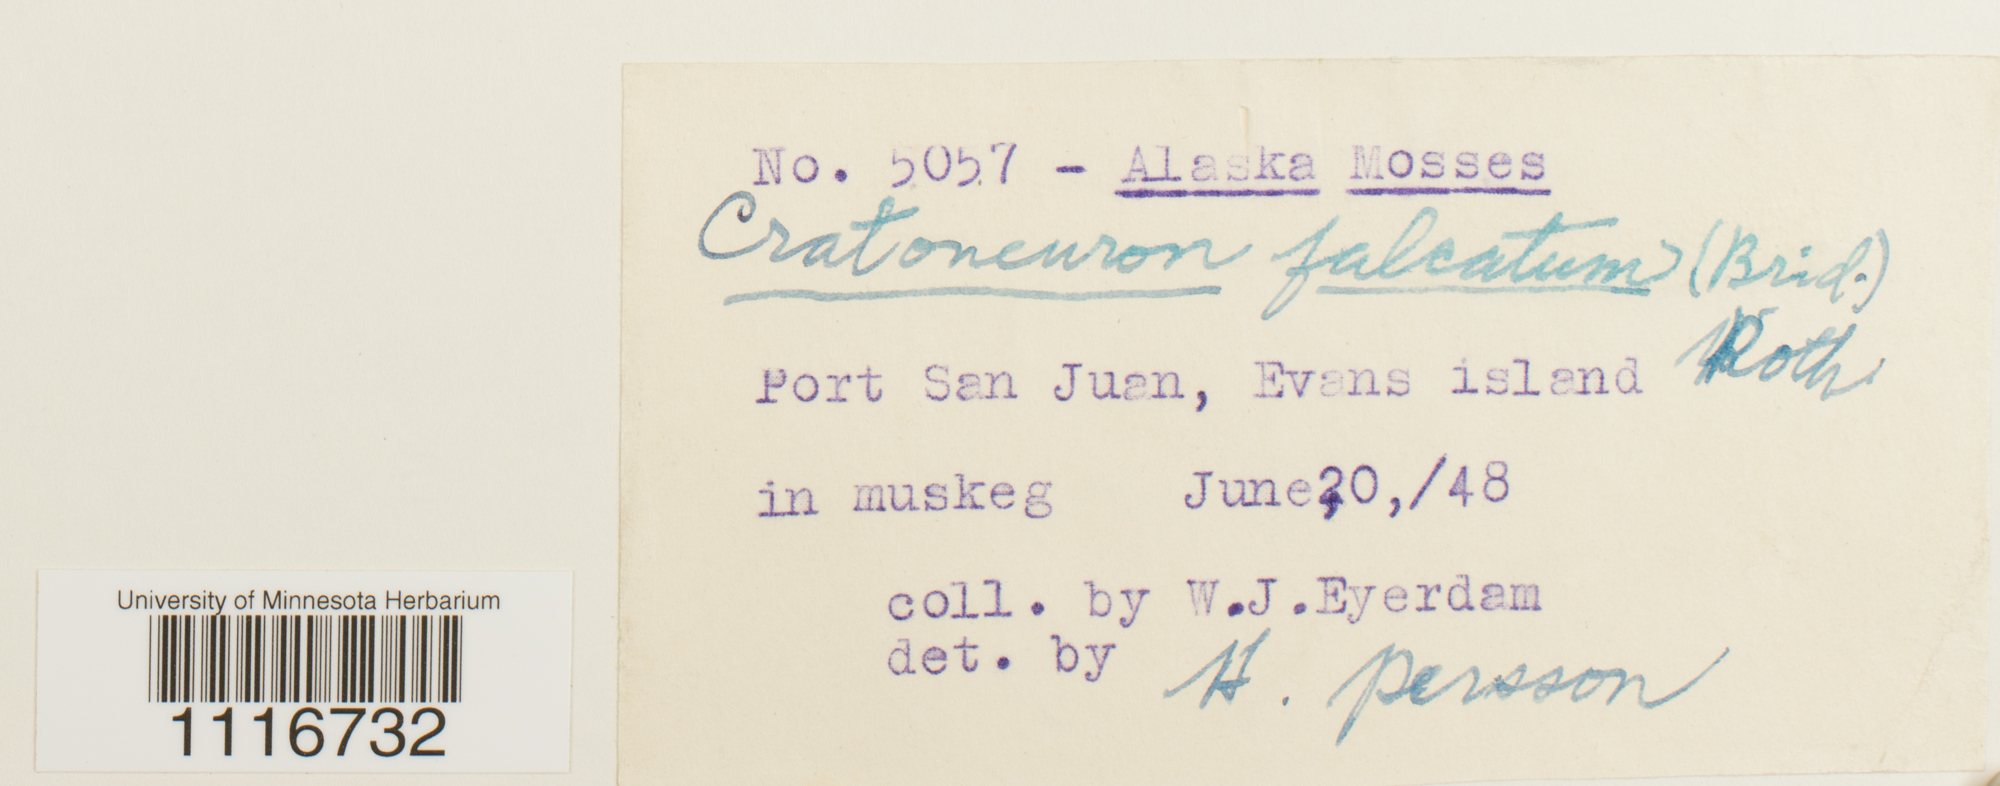 No. 5057 - Alaska Mosses
Cratoneuron falcatum (Brid.)
Roth
Port San Juan, Evans island
in muskeg June 20,/48
coll. by W.J.Eyerdam
det. by H. Persson
University of Minnesota Herbarium
1116732